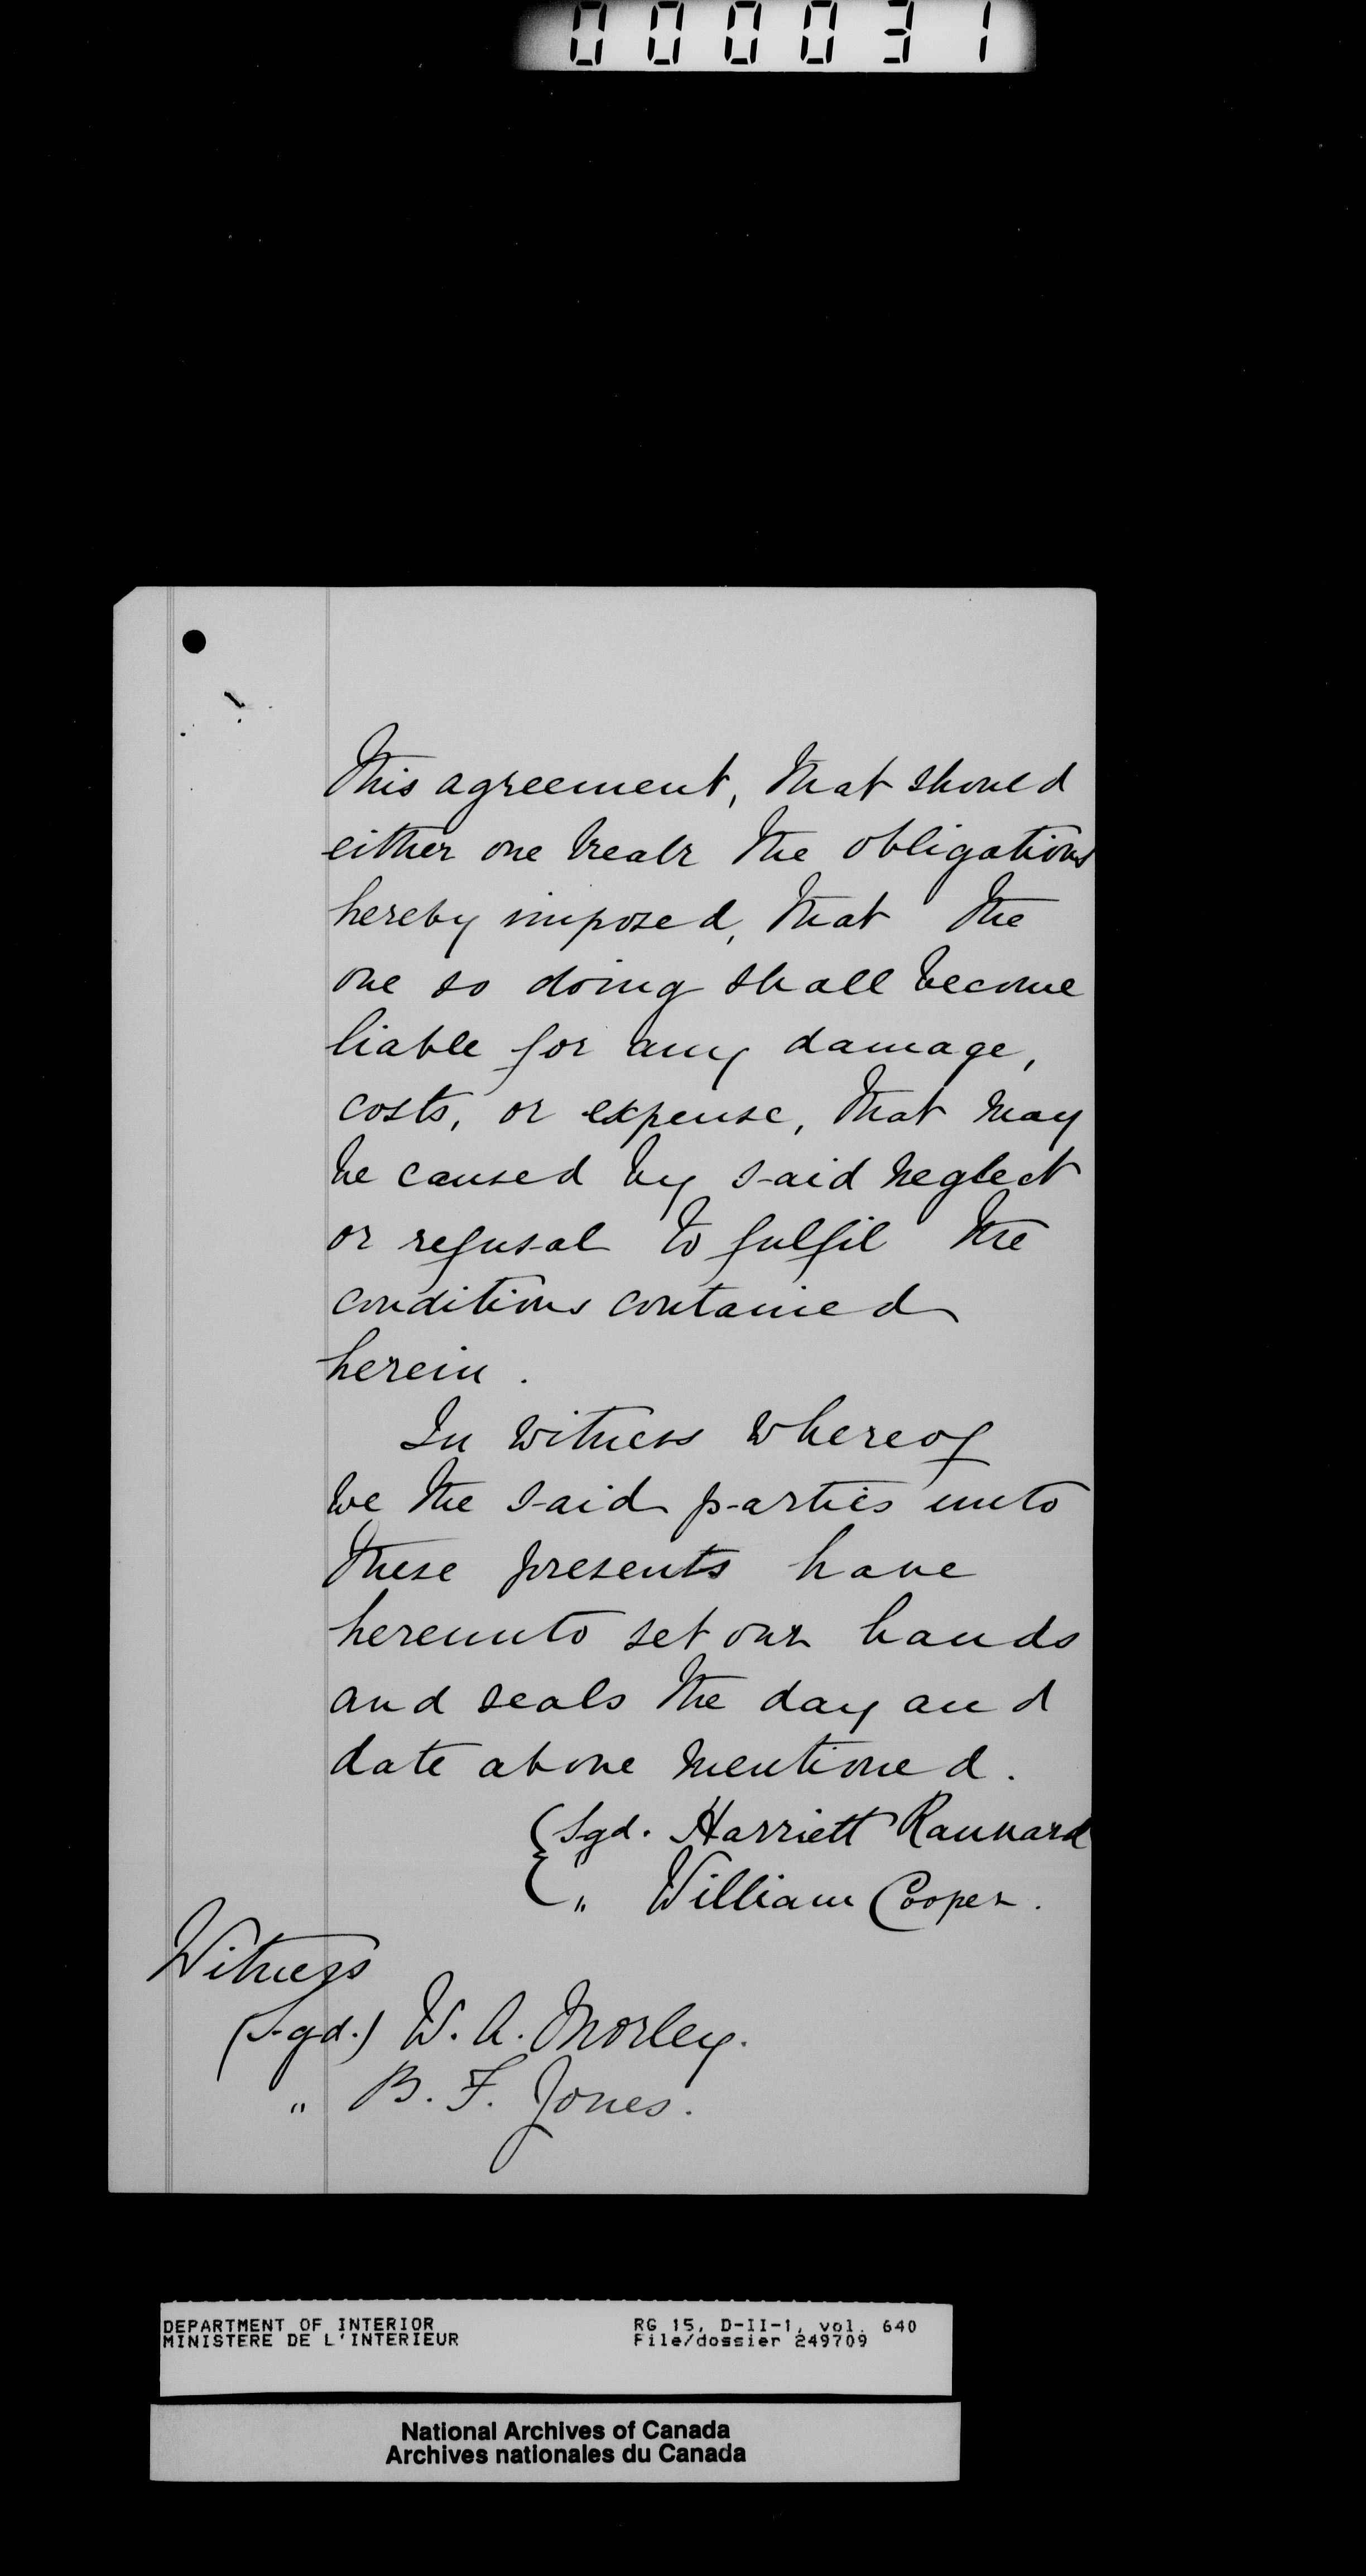 000031
this agreement, that should
either one break the obligations
hereby imposed, that the
one so doing shall become
liable for any damage,
costs, or expense, that may
be caused by said neglect
or refusal to fulfil the
conditions contained
herein.
In witness whereof
we the said parties unto
these presents have
hereunto set our hands
and seals the day and
date above mentioned.
(Sgd. Harriett Rannard
" William Cooper.
Witness
(Sgd.) W. A. Morley.
" B. F. Jones.
DEPARTMENT OF INTERIOR RG 15, D-II-1, vol. 640
MINISTERE DE L'INTERIEUR File/dossier 249709
National Archives of Canada
Archives nationales du Canada